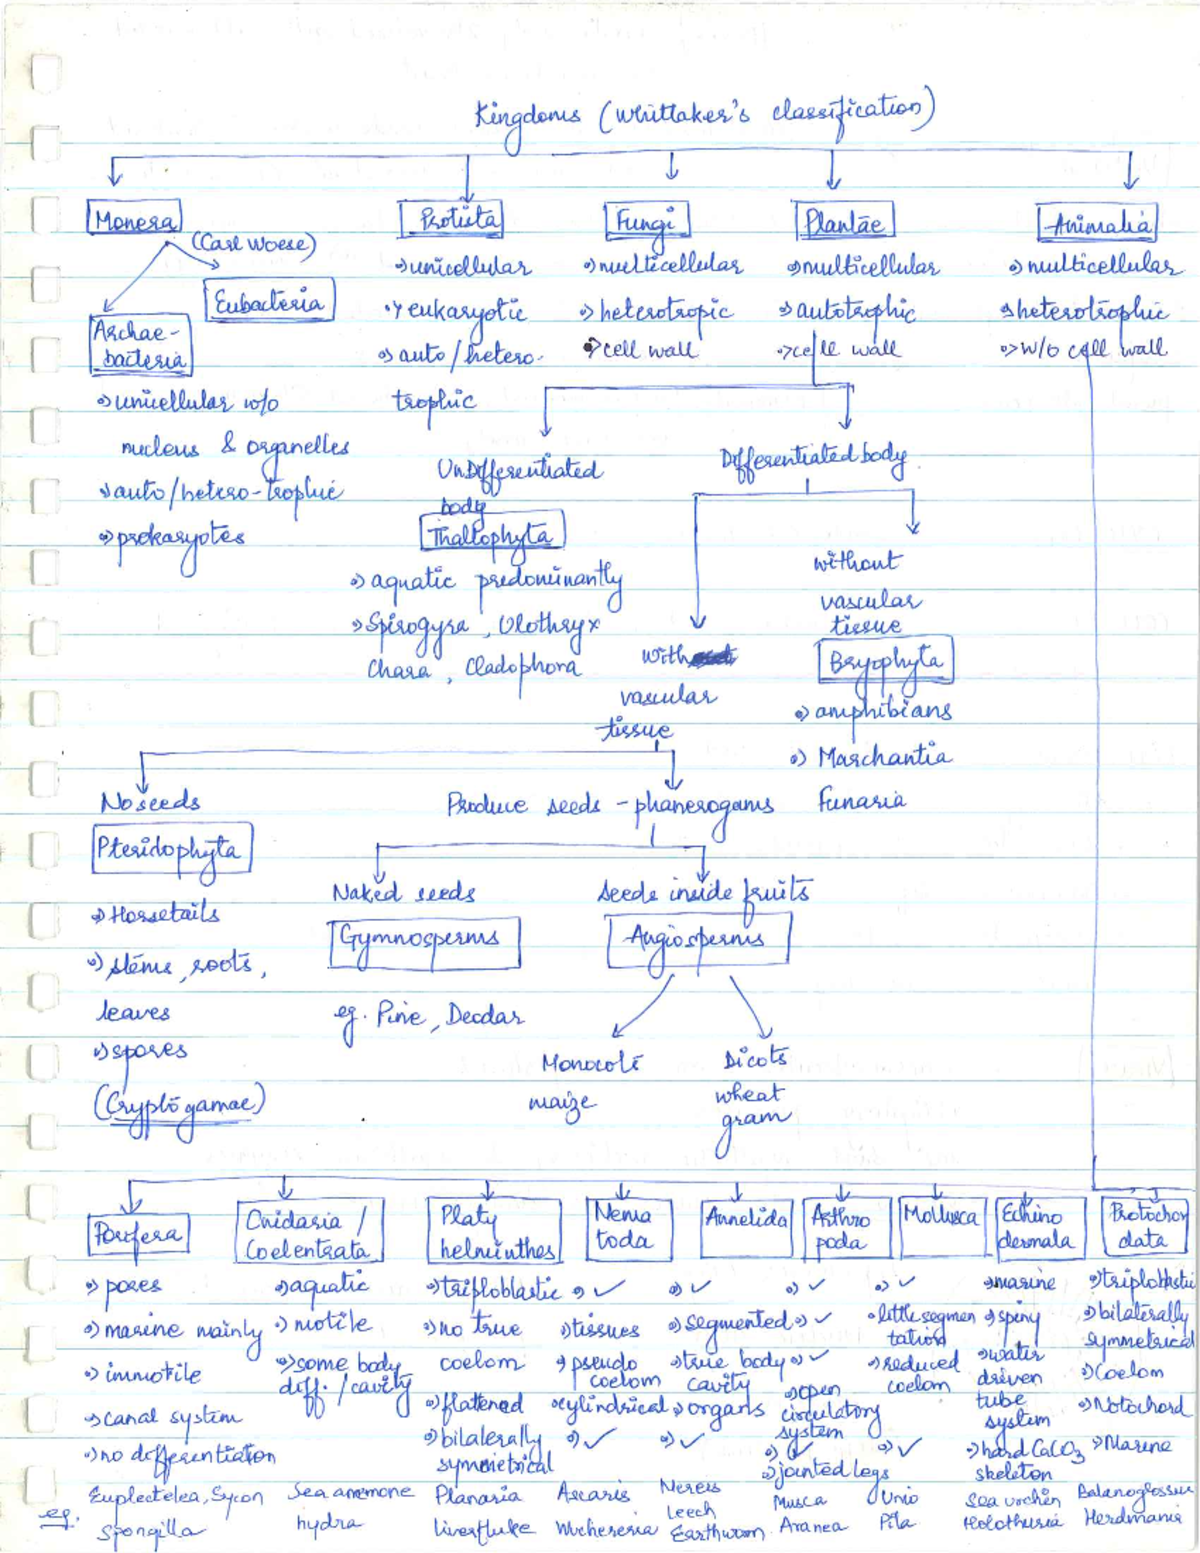 Kingdoms (Whittaker's classification)
Monera
Protista
Fungi
Plantae
Animalia
(Carl Woese)
Eubacteria
Archae-
bacteria
•> unicellular w/o
nucleus & organelles
•> auto/hetero-trophic
•> prokaryotes
•> unicellular
•> eukaryotic
•> auto/hetero-
trophic
•> multicellular
•> heterotropic
•> cell wall
•> multicellular
•> autotrophic
•> cell wall
•> multicellular
•> heterotrophic
•> w/o cell wall
UnDifferentiated
body
Thallophyta
•> aquatic predominantly
•> Spirogyra, Ulothryx
Chara, Cladophora
Differentiated body
with
vascular
tissue
without
vascular
tissue
Bryophyta
•> amphibians
•> Marchantia
Funaria
No seeds
Pteridophyta
•> Horsetails
•> stems, roots,
leaves
•> spores
(Cryptogamae)
Produce seeds - phanerogams
Naked seeds
Gymnosperms
eg. Pine, Deodar
Seeds inside fruits
Angiosperms
Monocots
maize
Dicots
wheat
gram
Porifera
•> pores
•> marine mainly
•> immotile
•> canal system
•> no differentiation
eg. Euplectelea, Sycon
Spongilla
Cnidaria /
Coelentrata
•> aquatic
•> motile
•> some body
diff. / cavity
Sea anemone
hydra
Platy
helminthes
•> triploblastic
•> no true
coelom
•> flattened
•> bilaterally
symmetrical
Planaria
Liverfluke
Nema
toda
•> ✓
•> tissues
•> pseudo
coelom
•> cylindrical
•> ✓
Ascaris
Wuchereria
Annelida
•> ✓
•> segmented
•> true body
cavity
•> organs
•> ✓
Nereis
Leech
Earthworm
Arthro
poda
•> ✓
•> ✓
•> ✓
•> open
circulatory
system
•> ✓
•> jointed legs
Musca
Aranea
Mollusca
•> ✓
•> little segmen
tation
•> reduced
coelom
•> ✓
Unio
Pila
Echino
dermata
•> marine
•> spiny
•> water
driven
tube
system
•> hard CaCO3
skeleton
Sea urchin
Holothuria
Protochor
data
•> triploblastic
•> bilaterally
symmetrical
•> Coelom
•> Notochord
•> Marine
Balanoglossus
Herdmania